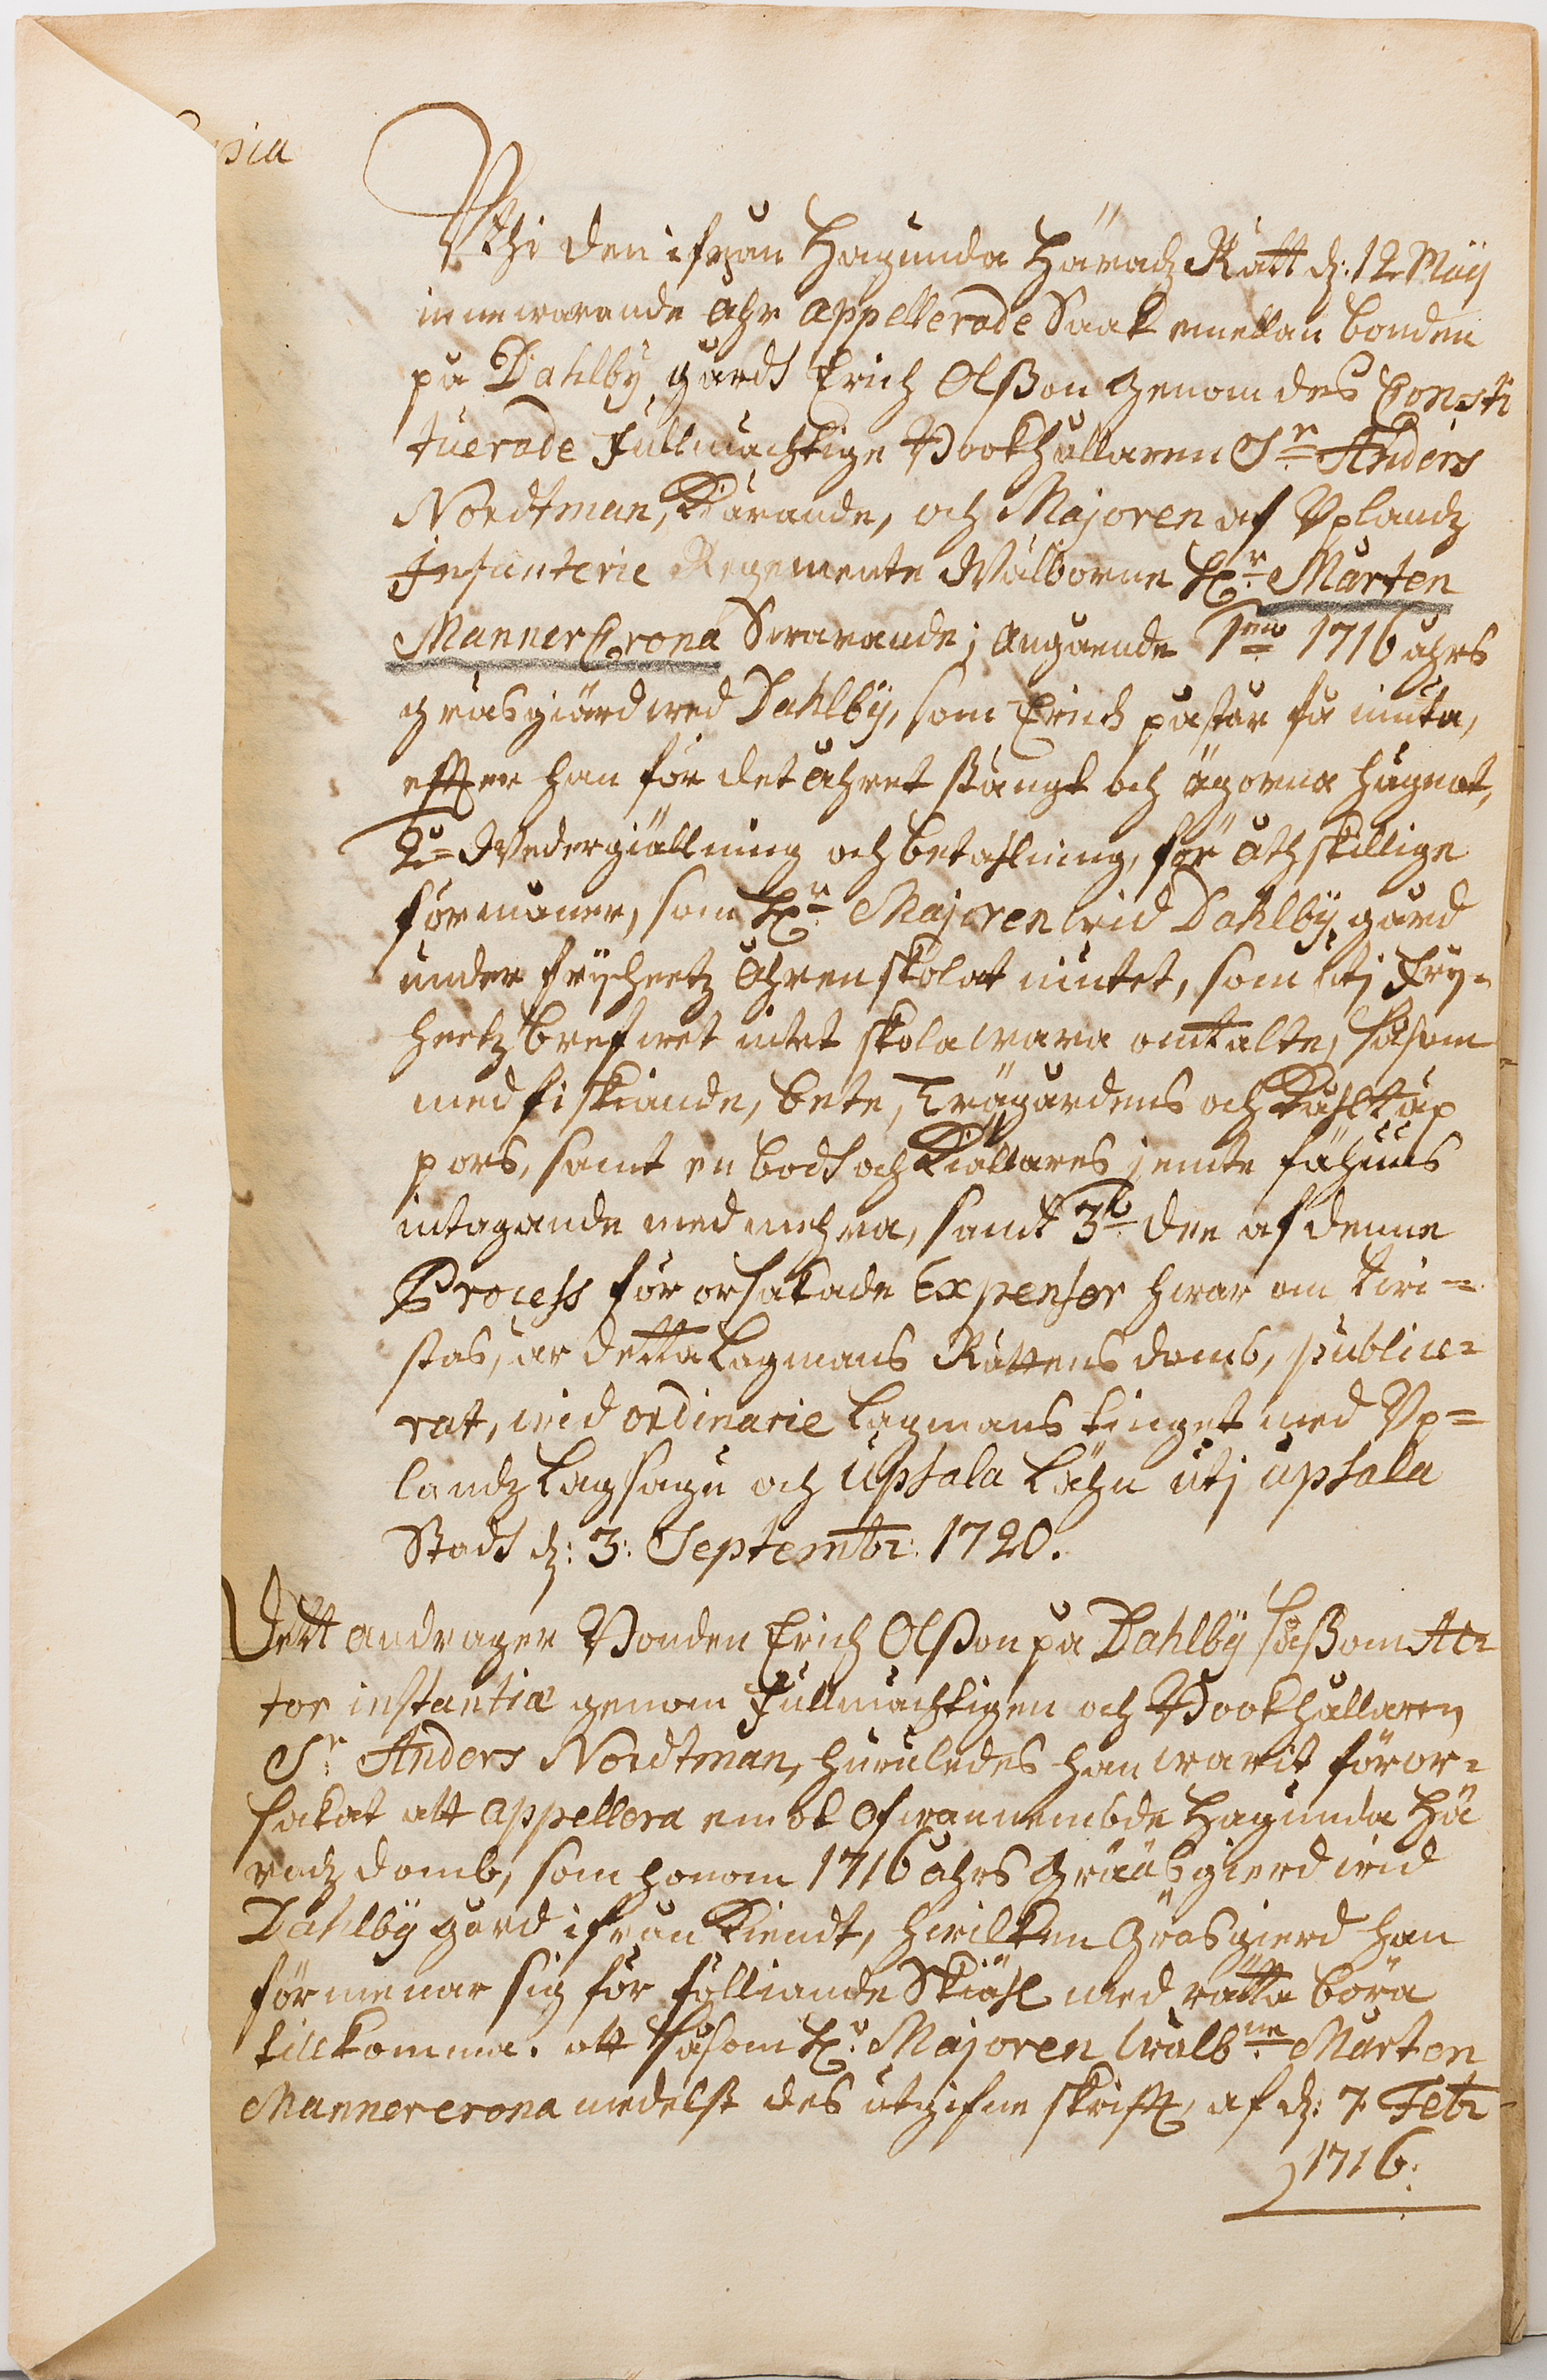 pia
Uthi den ifrån Hagunda Häradz Rätt dz: 12 Maij
innewarande åhr appellerade Saak emellan bonden
på Dahlby gårdh Erich Olßon genom des Consti
tuerade Fullmächtige Bookhållaren Sr Anders
Nordtman, Kärande, och Majoren af Uplandz
Infanterie Regemente Wälborne Hr Mårten
MannerCrona Swarande; angående 1mo 1716 åhrs
gräsgiärd wed Dahlbÿ, som Erich påstår få niuta,
effter han för det åhret stängt och ägorna hägnat,
2o Wedergiällning och betahlning, för åthskillige
förmåner, som Hr Majoren wid Dahlbÿ gård
under frijheetz åhren skolat niutet, som uti Frij-
heetz brefwet intet skola wara omtalte, såsom
med fiskiande, bete, Trägårdens och Kåhltäp
pors, samt en bodh och Kiällares jemte fähuus
intagande med mehra, samt 3o dee af denne
Process för orsakade Expenser hwar om twi-
stas, är detta Lagmans Rättens domb, publice-
rat, wid ordinarie Lagmans tinget med Up-
landz Lagsagu och Upsala Lähn uti Upsala
Stadh dz: 3: Septembr: 1720.
Dett andrager Bonden Erich Olßon på Dahlbÿ såßom Ac-
tor instantiæ genom Fullmächtigen och Bookhållaren
Sr Anders Nordtman, huruledes han warit föror-
sakat att appellera emot ofwannembde Hagunda Hä
radz domb, som honom 1716 åhrs Grääßgierd wid
Dahlbÿ gård ifrån Kiendt, hwilken Gräsgierd han
förmenar sig för fölliande Skiähl med rätta böra
tillkomma. att såsom Hr Majoren Wälbne Mårten
Mannercrona medelst des utgifne skrifft, af dz: 7 Febr
1716: